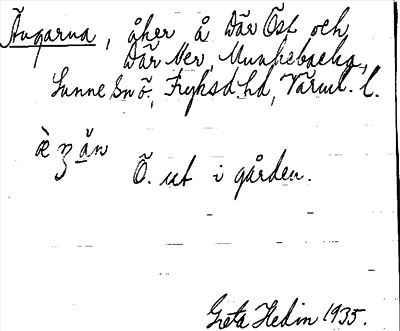 Ängarna, åker å Där Öst och
Där Ner, Munkebacka,
Sunne sn ö., Fryksd. hd, Värml. l.
Ö. ut i gården.
Greta Hedin 1935.